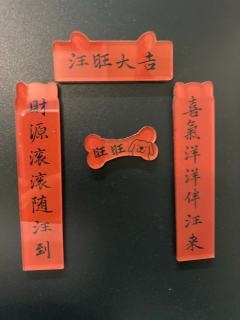 汪旺大吉
喜氣洋洋伴汪来
財源滚滚随汪到
旺旺